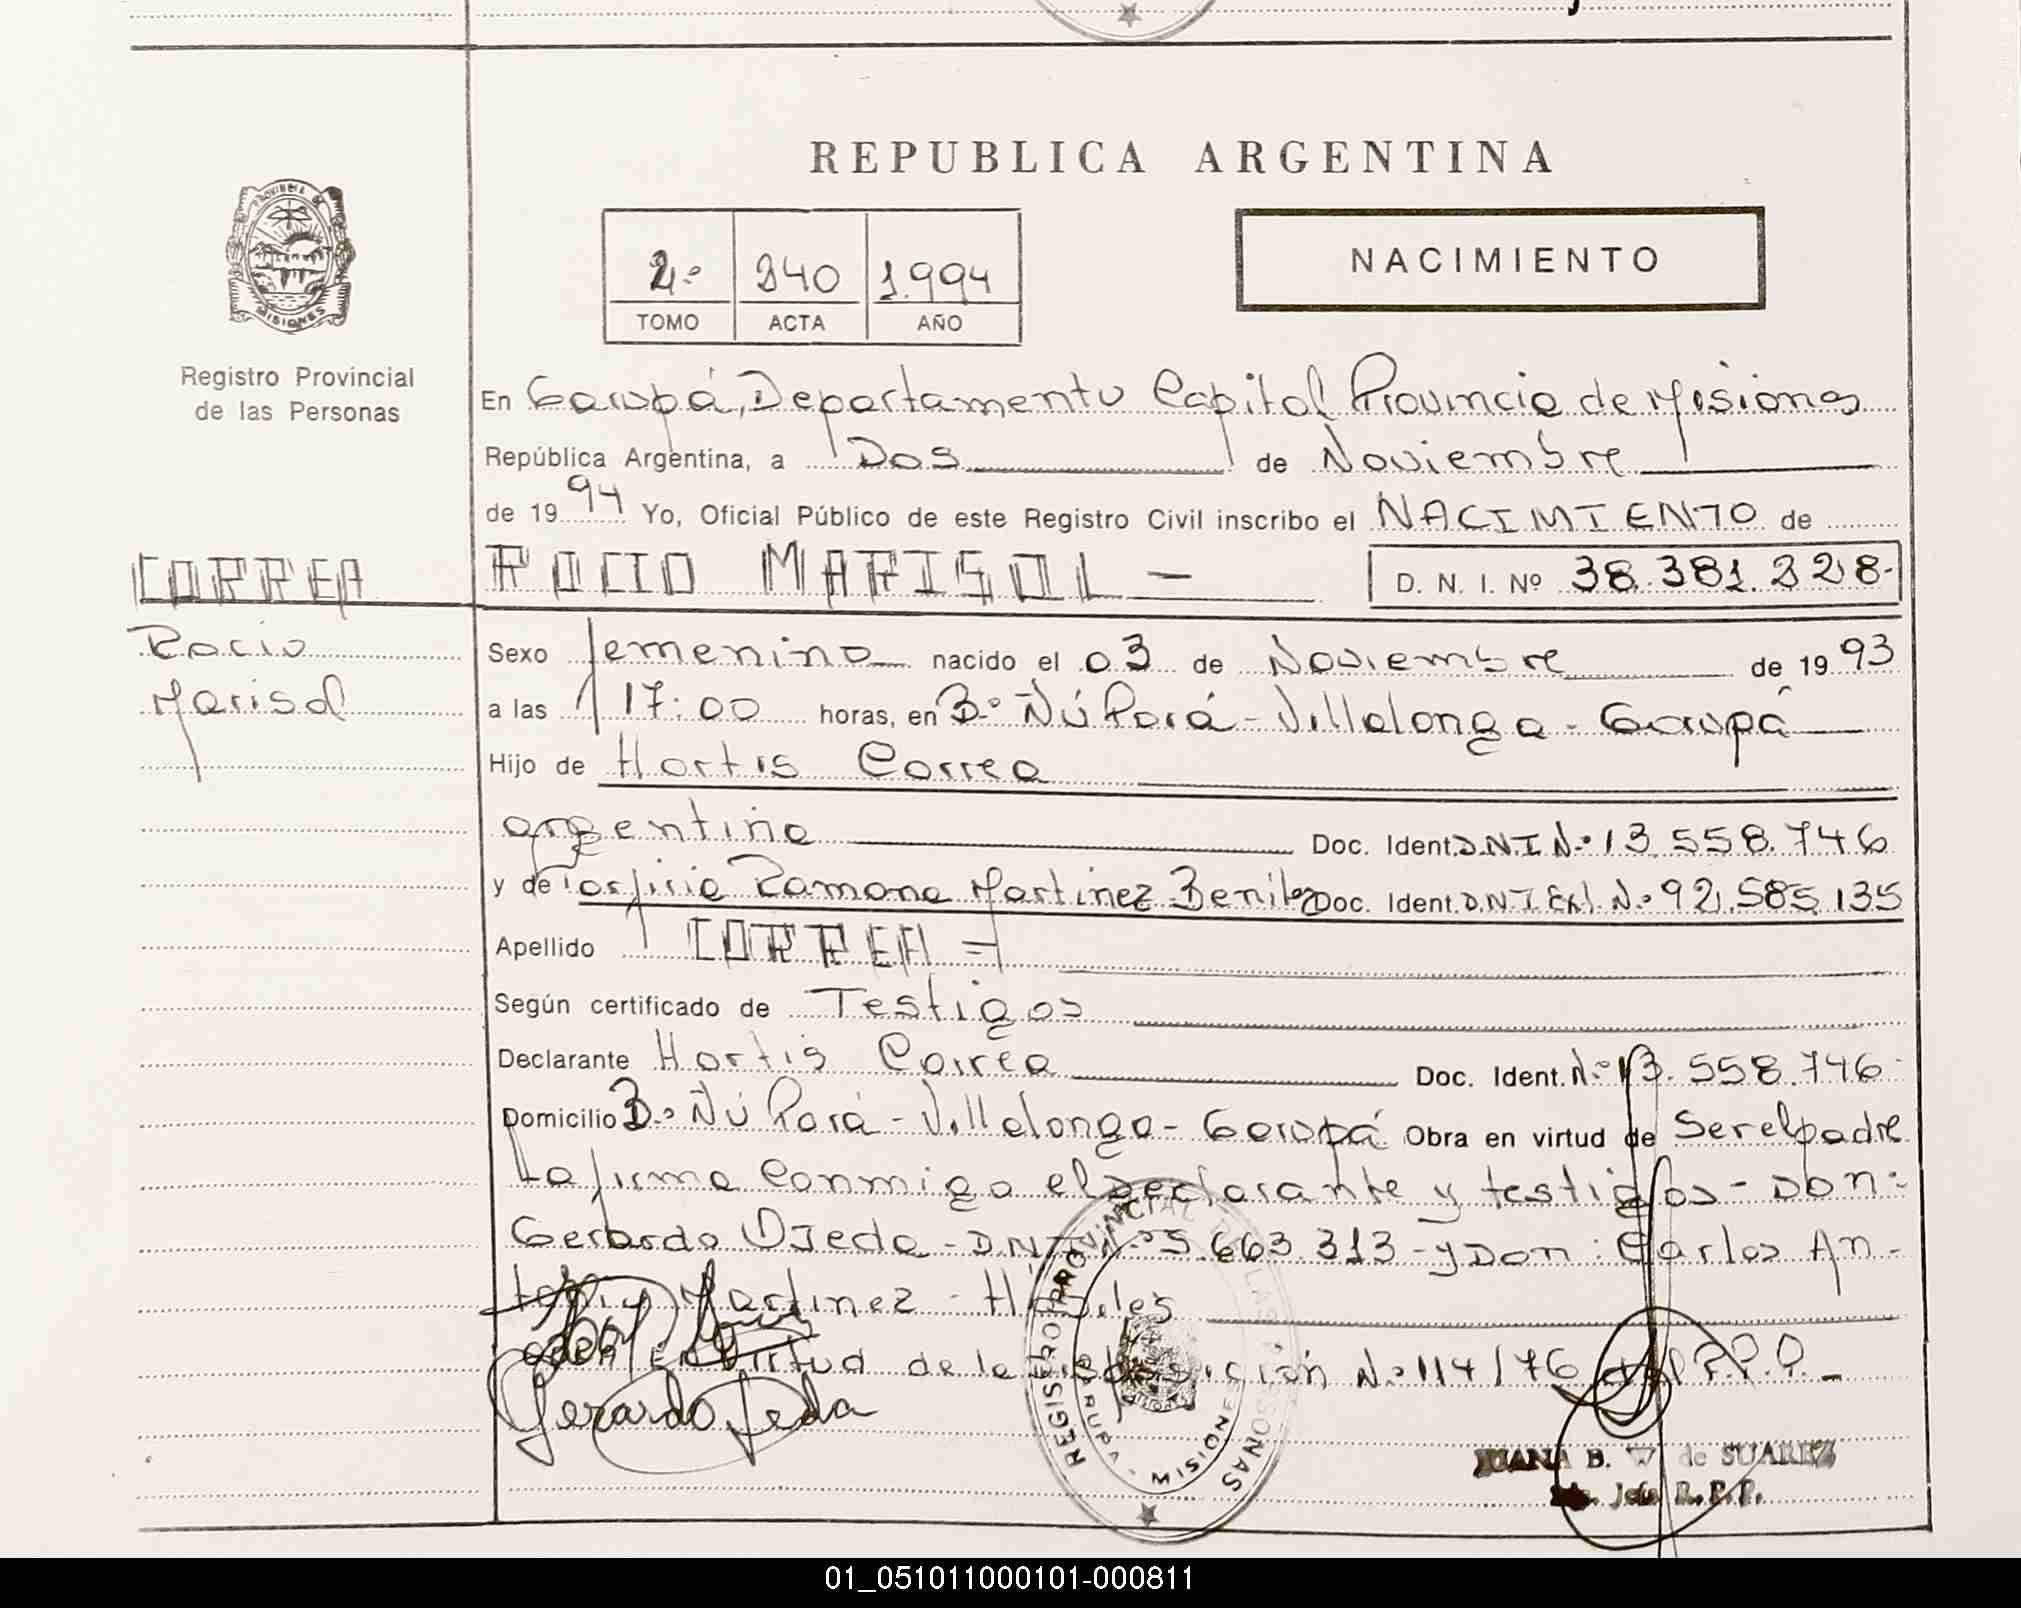 REPUBLICA ARGENTINA
PROVINCIA DE
MISIONES
Registro Provincial
de las Personas
2º 340 1.994
TOMO ACTA AÑO
NACIMIENTO
En Garupá, Departamento Capital Provincia de Misiones
República Argentina, a Dos de Noviembre
de 1994 Yo, Oficial Público de este Registro Civil inscribo el NACIMIENTO de
CORREA
Rocio
Marisol
ROCIO MARISOL - D. N. I. Nº 38.381.328-
Sexo femenino nacido el 03 de Noviembre de 1993
a las 17:00 horas, en Bº Ñú Porá - Villalonga - Garupá
Hijo de Hortis Correa
argentina Doc. Ident. D.N.I Nº 13.558.746
y de Porfiria Ramona Martinez Benitez Doc. Ident. D.N.I Ext. Nº 92.585.135
Apellido CORREA =
Según certificado de Testigos
Declarante Hortis Correa Doc. Ident. Nº 13.558.746
Domicilio Bº Ñú Porá - Villalonga - Garupá Obra en virtud de Ser el padre
La firma conmigo el declarante y testigos - Don:
Gerardo Ojeda - D.N.I Nº 5.663.313 - y Don: Carlos An-
tonio Martinez - H
En virtud de la disposición Nº 114/76 del R.P.P. -
Gerardo Ojeda
REGISTRO PROVINCIAL DE LAS PERSONAS
GARUPA - MISIONES
JUANA B. W. de SUAREZ
Jefe R.P.P.
01_051011000101-000811